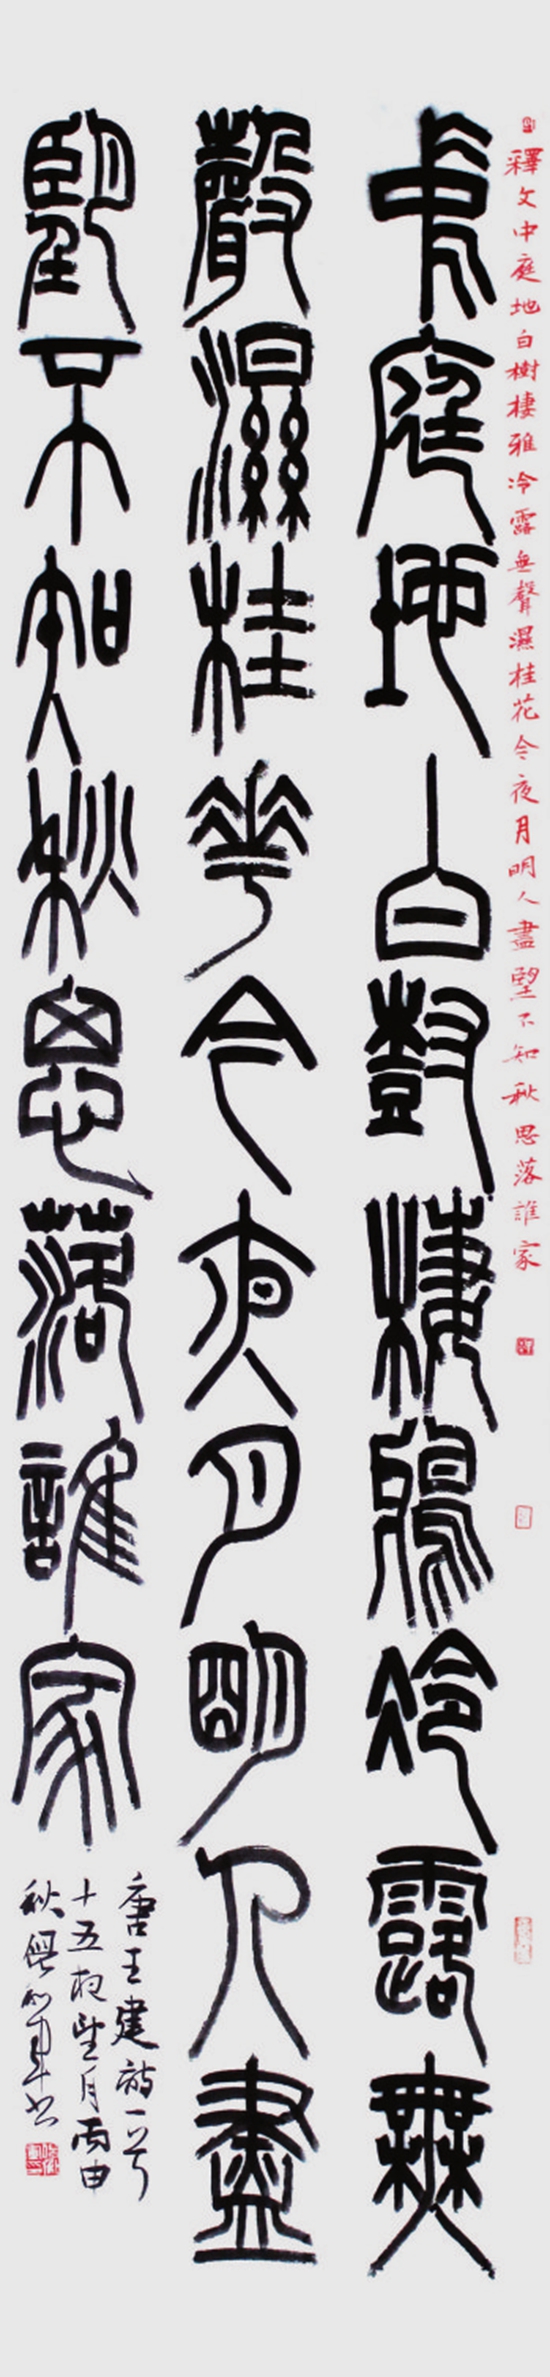 釋文中庭地白樹棲雅冷露無聲濕桂花今夜月明人盡望不知秋思落誰家
中庭地白樹棲鵶冷露無
聲濕桂華今夜月明人盡
朢不知秋思落誰家
唐王建詩一首
十五夜望月丙申
秋